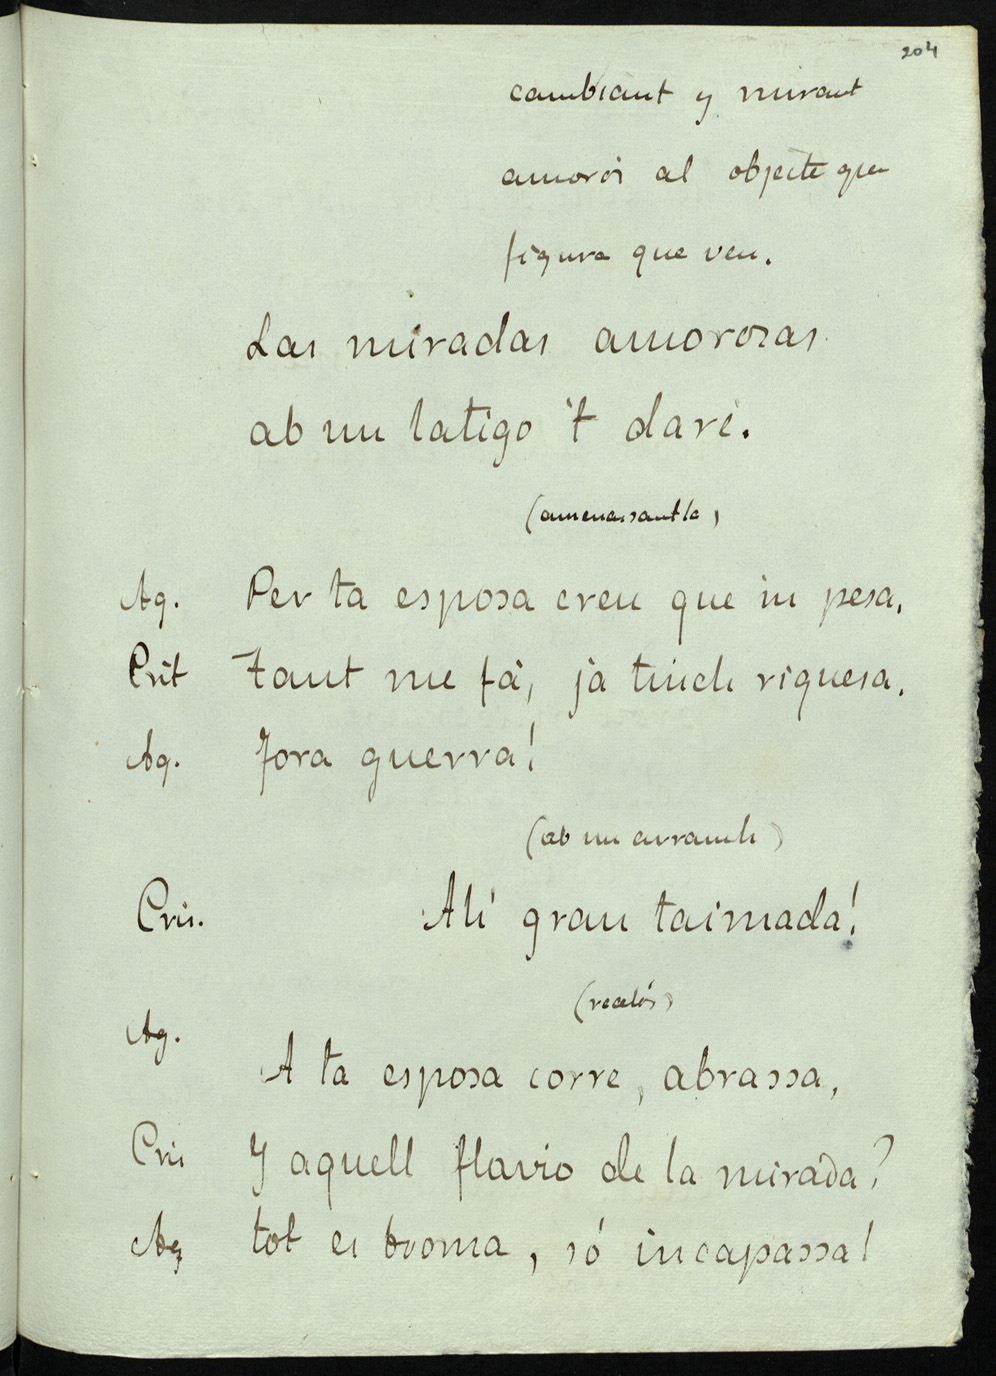 204
cambiant y mirant
amorós al objecte que
figura que veu.
Las miradas amorosas
ab un latigo 't daré.
(amenassantla)
Ag. Per ta esposa creu que in pesa,
Crit Tant me fá, já tinch riquesa.
Ag. Fora guerra!
(ab un arranch)
Cris. Ah! gran taimada!
(recelós)
Ag. A ta esposa corre, abrassa,
Cris Y aquell flavio de la mirada?
Ag tot es broma, só incapassa!